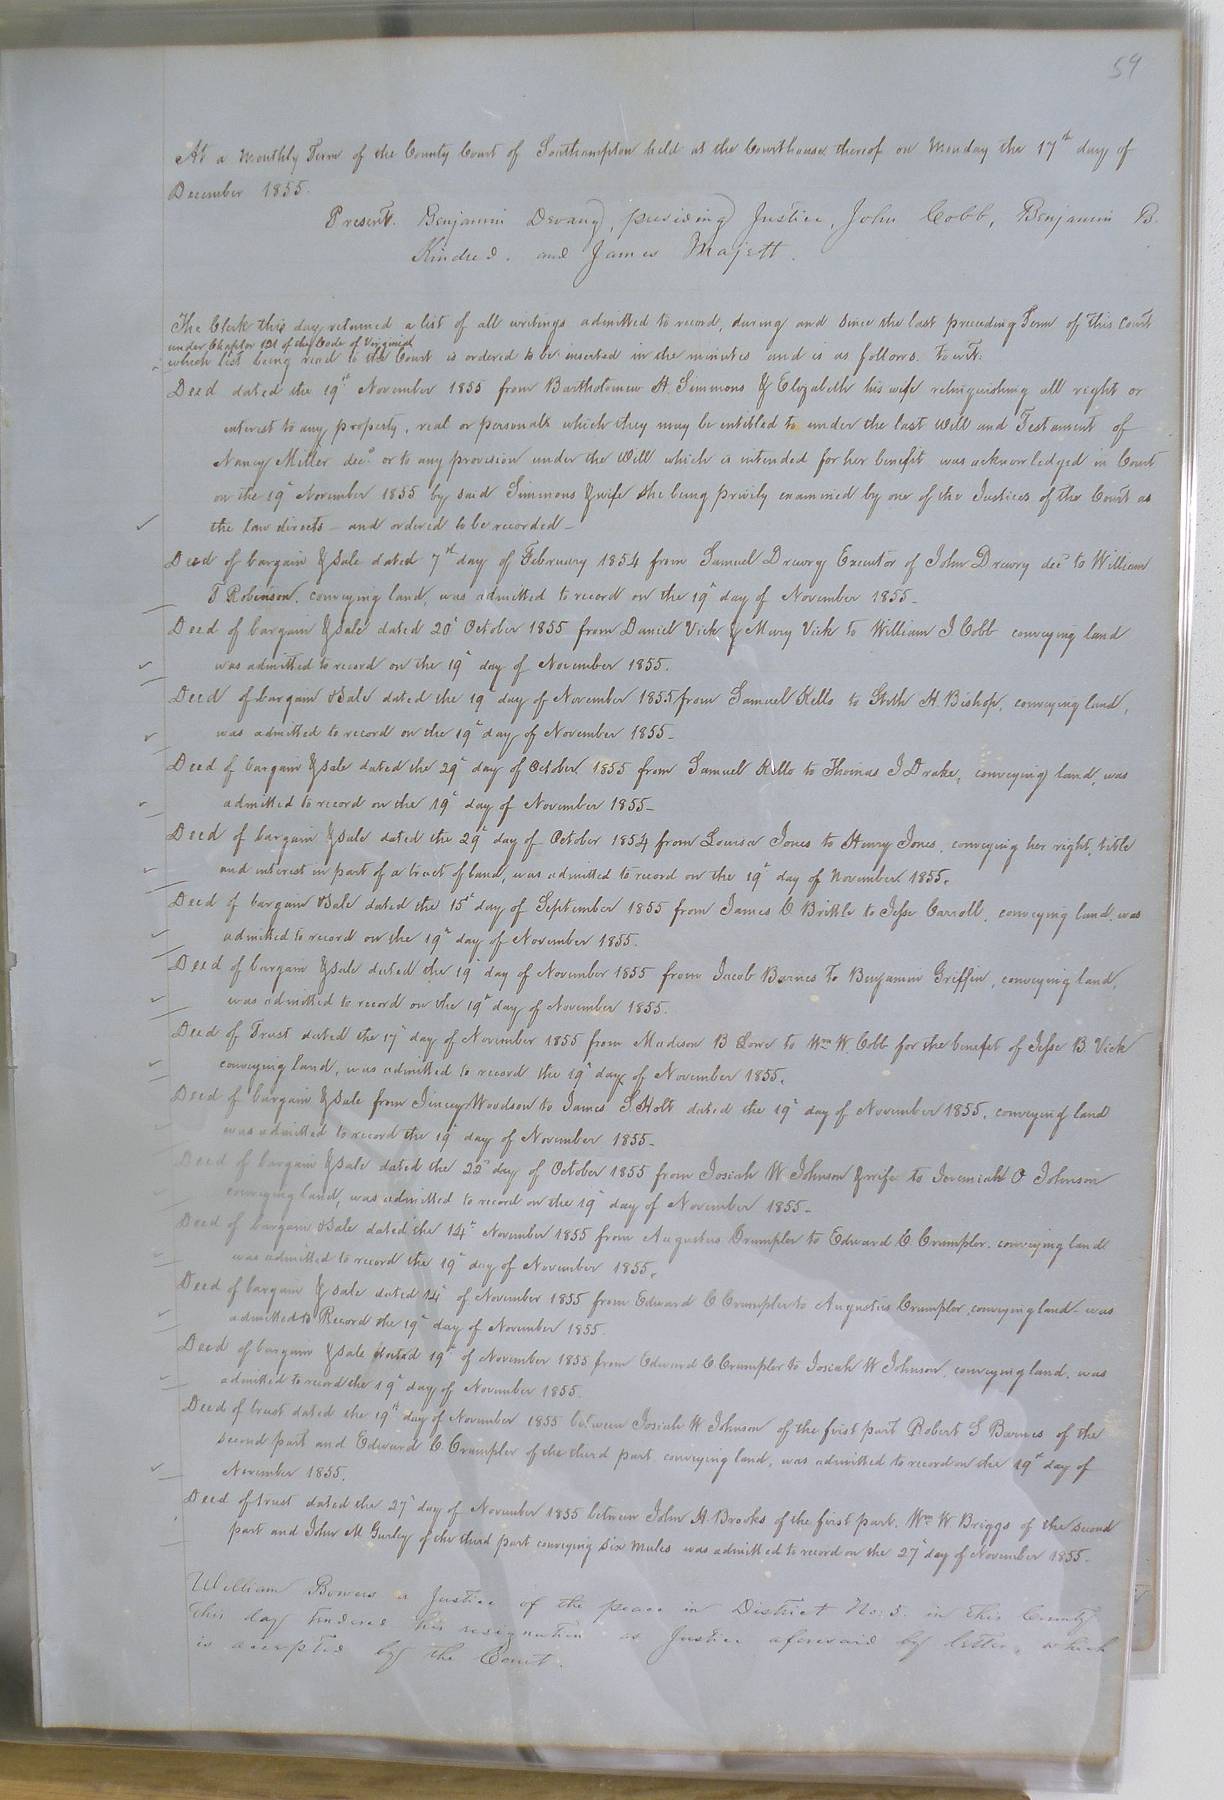 59
At a Monthly Term of the County Court of Southampton held at the Courthouse thereof on Monday the 17th day of
December 1855.
Present. Benjamin Devany, presiding Justice, John Cobb, Benjamin B.
Kindred, and James Majett.
The Clerk this day returned a list of all writings admitted to record, during and since the last preceding Term of this Court
under Chapter 121 of the Code of Virginia
which list being read to the Court is ordered to be inserted in the minutes and is as follows. To wit:
Deed dated the 19th November 1855 from Bartholomew H. Simmons & Elizabeth his wife relinquishing all right or
interest to any property, real or personal which they may be entitled to under the last Will and Testament of
Nancy Miller decd or to any provision under the Will which is intended for her benefit was acknowledged in Court
on the 19th November 1855 by said Simmons & wife she being privily examined by one of the Justices of the Court as
the law directs - and ordered to be recorded -
Deed of bargain & sale dated 7th day of February 1854 from Samuel Drewry Executor of John Drewry decd to William
T Robinson, conveying land, was admitted to record on the 19th day of November 1855 -
Deed of bargain & sale dated 20th October 1855 from Daniel Vick & Mary Vick to William J Cobb conveying land
was admitted to record on the 19th day of November 1855.
Deed of bargain & sale dated the 19th day of November 1855 from Samuel Kello to Stith H. Bishop, conveying land,
was admitted to record on the 19th day of November 1855 -
Deed of bargain & sale dated the 29th day of October 1855 from Samuel Kello to Thomas J Drake, conveying land, was
admitted to record on the 19th day of November 1855 -
Deed of bargain & sale dated the 29th day of October 1854 from Louisa Jones to Henry Jones, conveying her right, title
and interest in part of a tract of land, was admitted to record on the 19th day of November 1855.
Deed of bargain & sale dated the 15th day of September 1855 from James C Brittle to Jesse Carroll, conveying land, was
admitted to record on the 19th day of November 1855.
Deed of bargain & sale dated the 19th day of November 1855 from Jacob Barnes to Benjamin Griffin, conveying land,
was admitted to record on the 19th day of November 1855.
Deed of Trust dated the 17th day of November 1855 from Madison B Lowe to Wm W. Cobb for the benefit of Jesse B. Vick
conveying land, was admitted to record the 19th day of November 1855.
Deed of bargain & sale from Jincey Woodson to James S. Holt dated the 19th day of November 1855, conveying land
was admitted to record the 19th day of November 1855 -
Deed of bargain & sale dated the 22nd day of October 1855 from Josiah W Johnson & wife to Jeremiah O Johnson
conveying land, was admitted to record on the 19th day of November 1855 -
Deed of bargain & sale dated the 14th November 1855 from Augustus Crumpler to Edward C. Crumpler, conveying land
was admitted to record the 19th day of November 1855.
Deed of bargain & sale dated 14th of November 1855 from Edward C Crumpler to Augustus Crumpler, conveying land - was
admitted to Record the 19th day of November 1855.
Deed of bargain & sale dated 19th of November 1855 from Edward C Crumpler to Josiah W Johnson, conveying land, was
admitted to record the 19th day of November 1855.
Deed of trust dated the 19th day of November 1855 between Josiah W Johnson of the first part Robert S Barnes of the
second part and Edward C. Crumpler of the third part, conveying land, was admitted to record on the 19th day of
November 1855.
Deed of trust dated the 27th day of November 1855 between John H. Brooks of the first part, Wm W Briggs of the second
part and John M Gurley of the third part conveying six mules was admitted to record on the 27th day of November 1855.
William Bowers a Justice of the peace in District No: 5. in this County
this day tendered his resignation as Justice aforesaid by letter, which
is accepted by the Court.